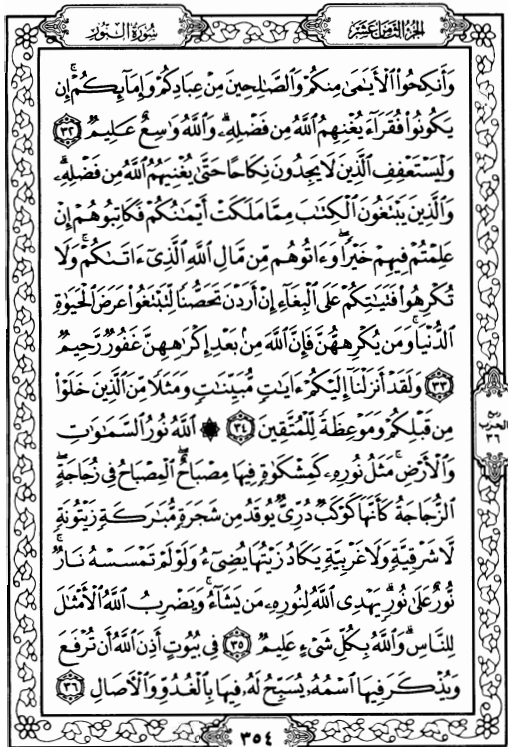 سُورَةُ النُّورِ
الجُزءُ الثَّامِنَ عَشَر
وَأَنكِحُوا۟ ٱلْأَيَـٰمَىٰ مِنكُمْ وَٱلصَّـٰلِحِينَ مِنْ عِبَادِكُمْ وَإِمَآئِكُمْ ۚ إِن
يَكُونُوا۟ فُقَرَآءَ يُغْنِهِمُ ٱللَّهُ مِن فَضْلِهِۦ ۗ وَٱللَّهُ وَٰسِعٌ عَلِيمٌ ٣٢
وَلْيَسْتَعْفِفِ ٱلَّذِينَ لَا يَجِدُونَ نِكَاحًا حَتَّىٰ يُغْنِيَهُمُ ٱللَّهُ مِن فَضْلِهِۦ ۗ
وَٱلَّذِينَ يَبْتَغُونَ ٱلْكِتَـٰبَ مِمَّا مَلَكَتْ أَيْمَـٰنُكُمْ فَكَاتِبُوهُمْ إِنْ
عَلِمْتُمْ فِيهِمْ خَيْرًا ۖ وَءَاتُوهُم مِّن مَّالِ ٱللَّهِ ٱلَّذِىٓ ءَاتَىٰكُمْ ۚ وَلَا
تُكْرِهُوا۟ فَتَيَـٰتِكُمْ عَلَى ٱلْبِغَآءِ إِنْ أَرَدْنَ تَحَصُّنًا لِّتَبْتَغُوا۟ عَرَضَ ٱلْحَيَوٰةِ
ٱلدُّنْيَا ۚ وَمَن يُكْرِههُّنَّ فَإِنَّ ٱللَّهَ مِنۢ بَعْدِ إِكْرَٰهِهِنَّ غَفُورٌ رَّحِيمٌ
٣٣ وَلَقَدْ أَنزَلْنَآ إِلَيْكُمْ ءَايَـٰتٍ مُّبَيِّنَـٰتٍ وَمَثَلًا مِّنَ ٱلَّذِينَ خَلَوْا۟
مِن قَبْلِكُمْ وَمَوْعِظَةً لِّلْمُتَّقِينَ ٣٤ ۞ ٱللَّهُ نُورُ ٱلسَّمَـٰوَٰتِ
وَٱلْأَرْضِ ۚ مَثَلُ نُورِهِۦ كَمِشْكَوٰةٍ فِيهَا مِصْبَاحٌ ۖ ٱلْمِصْبَاحُ فِى زُجَاجَةٍ ۖ
ٱلزُّجَاجَةُ كَأَنَّهَا كَوْكَبٌ دُرِّىٌّ يُوقَدُ مِن شَجَرَةٍ مُّبَـٰرَكَةٍ زَيْتُونَةٍ
لَّا شَرْقِيَّةٍ وَلَا غَرْبِيَّةٍ يَكَادُ زَيْتُهَا يُضِىٓءُ وَلَوْ لَمْ تَمْسَسْهُ نَارٌ ۚ
نُّورٌ عَلَىٰ نُورٍ ۗ يَهْدِى ٱللَّهُ لِنُورِهِۦ مَن يَشَآءُ ۚ وَيَضْرِبُ ٱللَّهُ ٱلْأَمْثَـٰلَ
لِلنَّاسِ ۗ وَٱللَّهُ بِكُلِّ شَىْءٍ عَلِيمٌ ٣٥ فِى بُيُوتٍ أَذِنَ ٱللَّهُ أَن تُرْفَعَ
وَيُذْكَرَ فِيهَا ٱسْمُهُۥ يُسَبِّحُ لَهُۥ فِيهَا بِٱلْغُدُوِّ وَٱلْـَٔاصَالِ ٣٦
ربع
الحزب
٣٦
٣٥٤